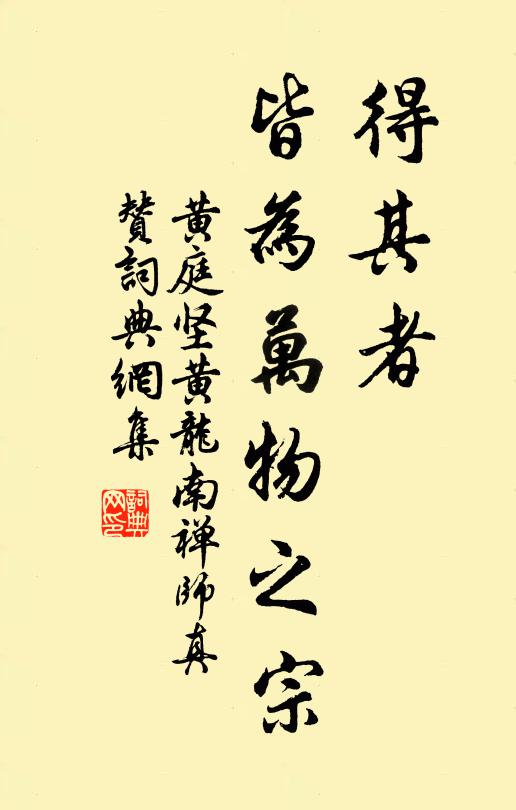 得其者
皆為萬物之宗
黄庭坚黄龍南禅師真
贊詞典網集
詞典網印